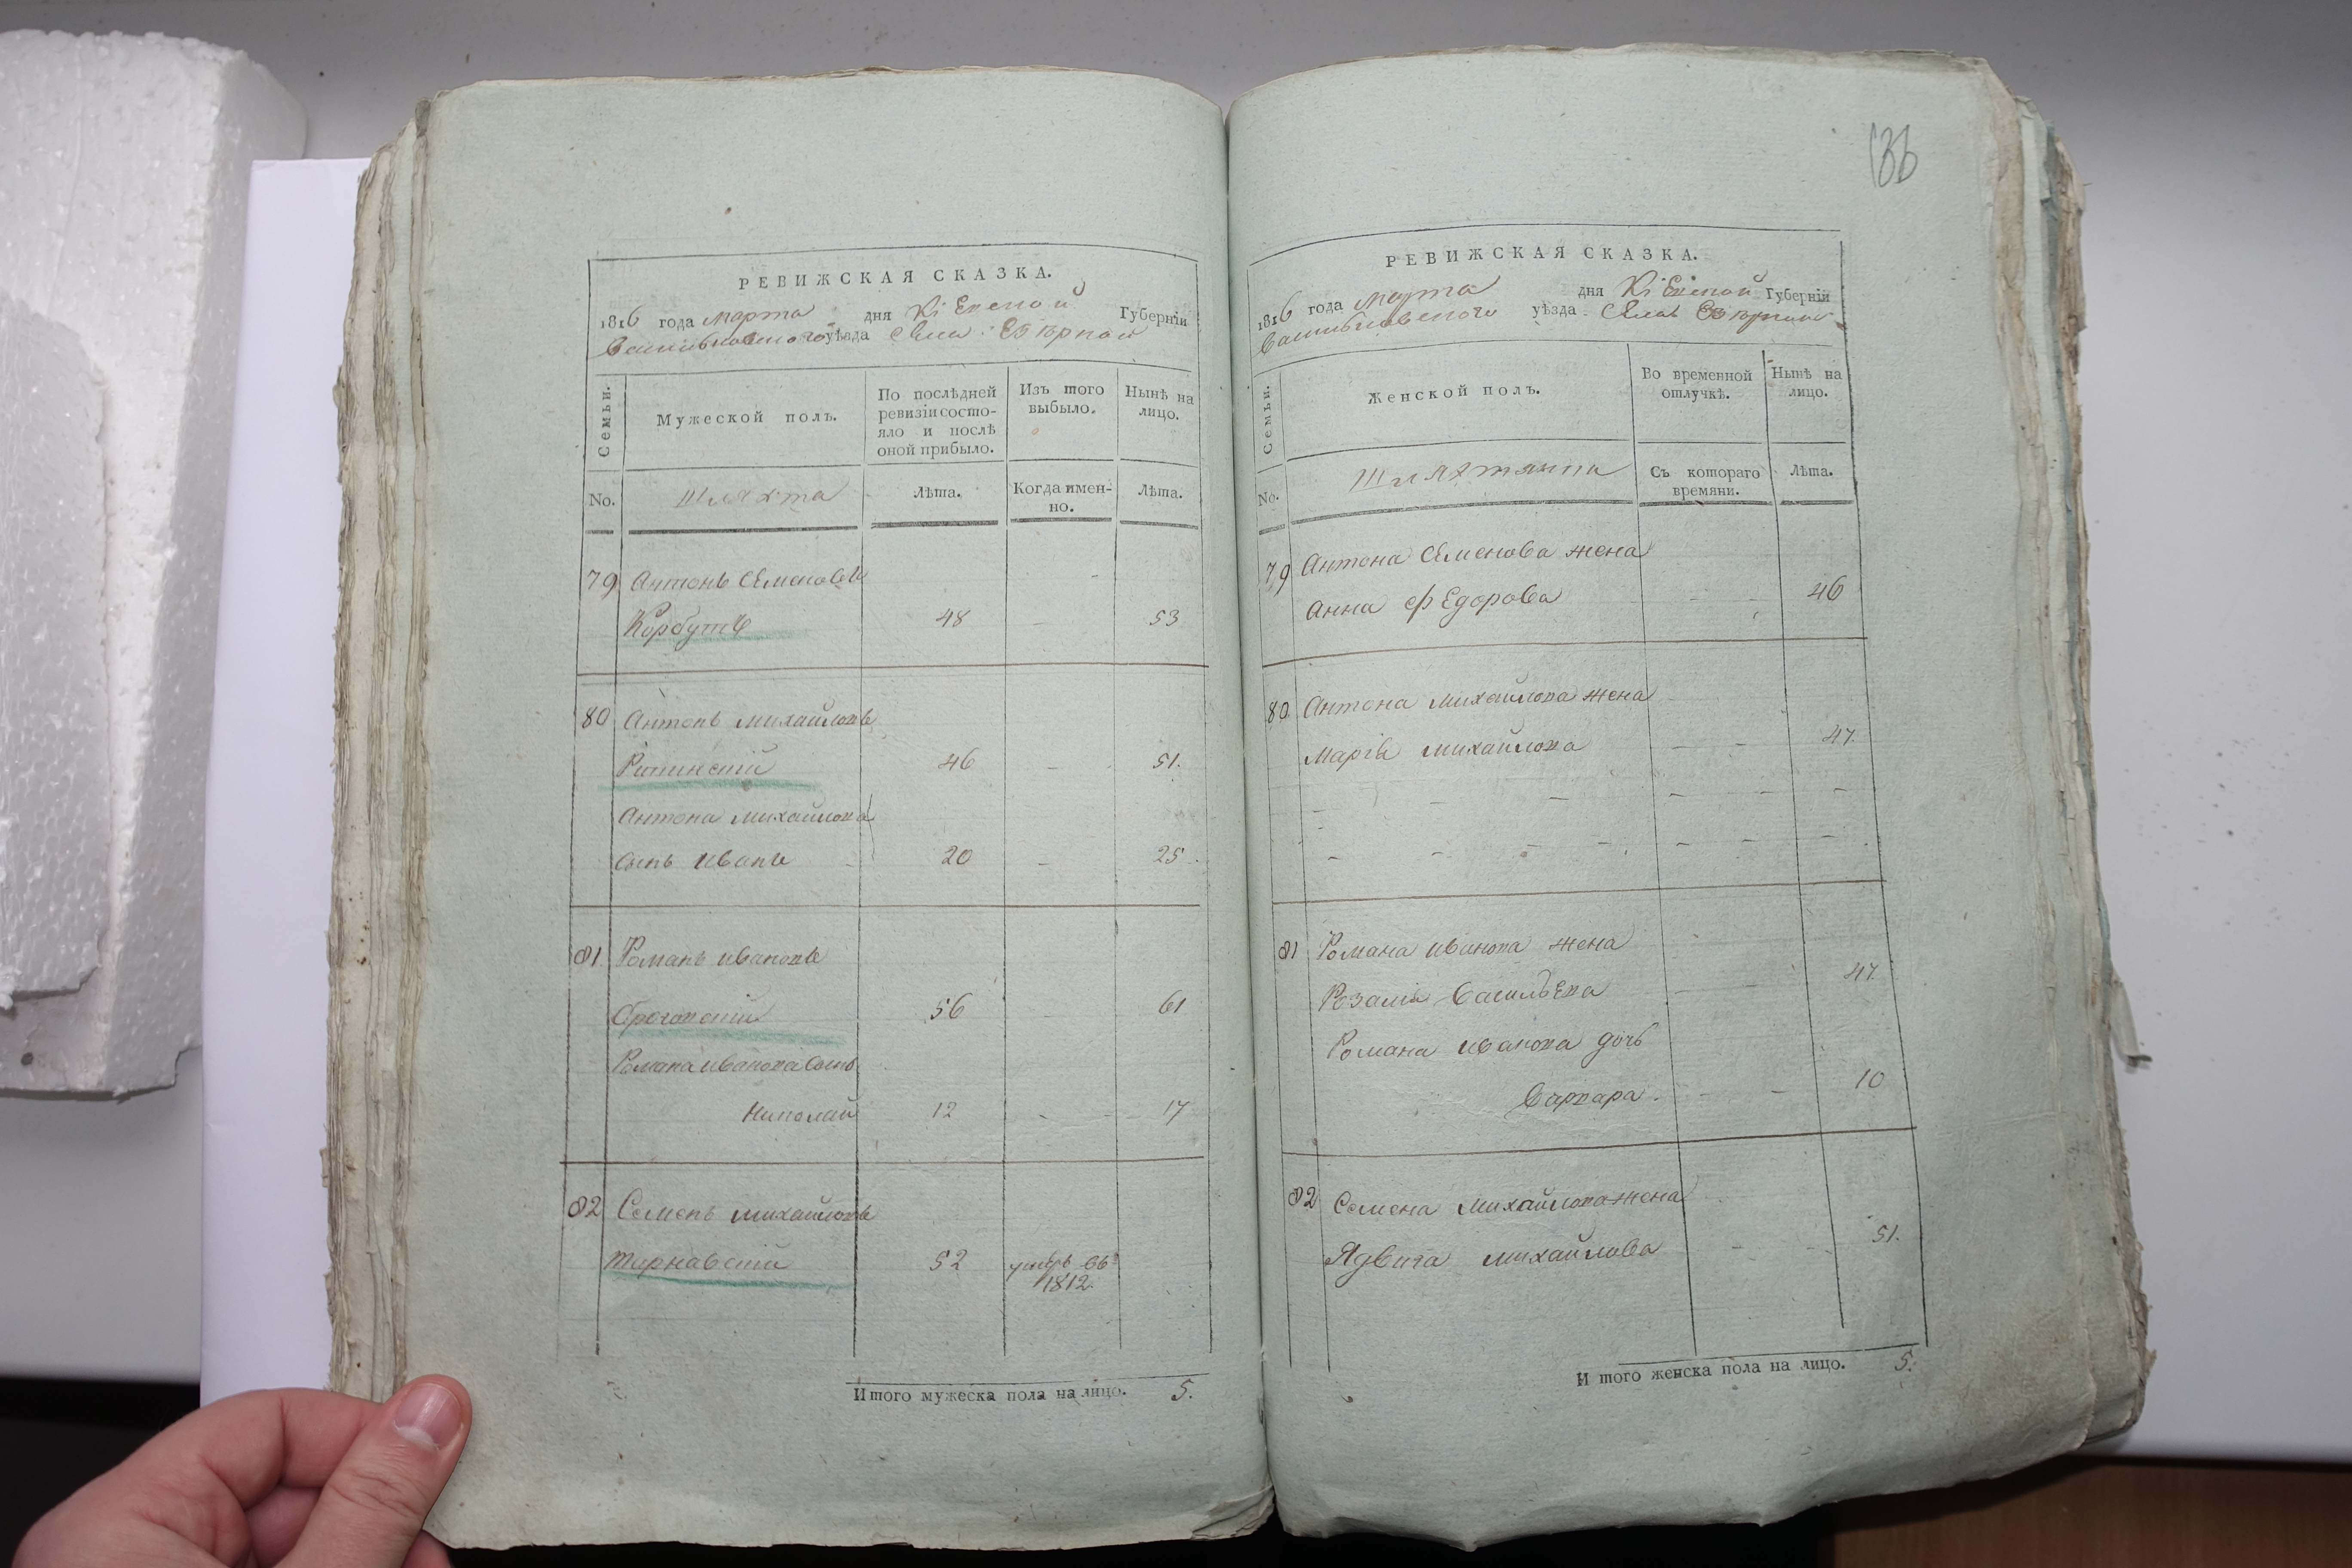 РЕВИЖСКАЯ СКАЗКА.
1816 года марта дня Кіевской Губерніи
Васильковского уѣзда села
Семьи.
Мужеской полъ.
По послѣдней ревизіи состо-
яло и послѣ
оной прибыло.
Изъ того
выбыло.
Нынѣ на
лицо.
No.
Шляхта
Лѣта.
Когда имен-
но.
Лѣта.
79 Антонъ Семеновъ
Корбутъ 48 - 53
80 Антонъ Михайловъ
46 - 51.
Антона Михайлова
сынъ Иванъ - 20 - 25
81 Романъ Ивановъ
56 - 61
Романа Иванова сынъ
Николай 12 - 17
82 Семенъ Михайловъ
Тарнавскій 52 умеръ въ
1812.
Итого мужеска пола на лицо. 5.
136
РЕВИЖСКАЯ СКАЗКА.
1816 года марта дня Кіевской Губерніи
Васильковского уѣзда села
Семьи.
Женской полъ.
Во временной
отлучкѣ.
Нынѣ на
лицо.
No.
Шляхтянки
Съ котораго
времяни.
Лѣта.
79 Антона Семенова жена
Анна Федорова - - 46
80 Антона Михайлова жена
Марія Михайлова - - 47.
81 Романа Иванова жена
Розалія Васильева - - 47.
Романа Иванова дочь
Варвара. - - 10
82 Семена Михайлова жена
Ядвига Михайлова - - 51.
И того женска пола на лицо. 5.